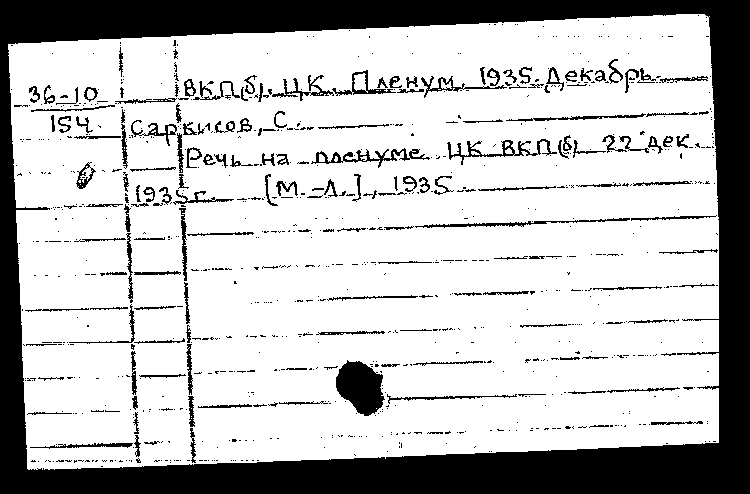 36-10 ВКП(б). ЦК. Пленум. 1935. Декабрь.
154 Саркисов, С.
Речь на пленуме ЦК ВКП(б) 22 дек.
1935 г. [М.-Л.], 1935.